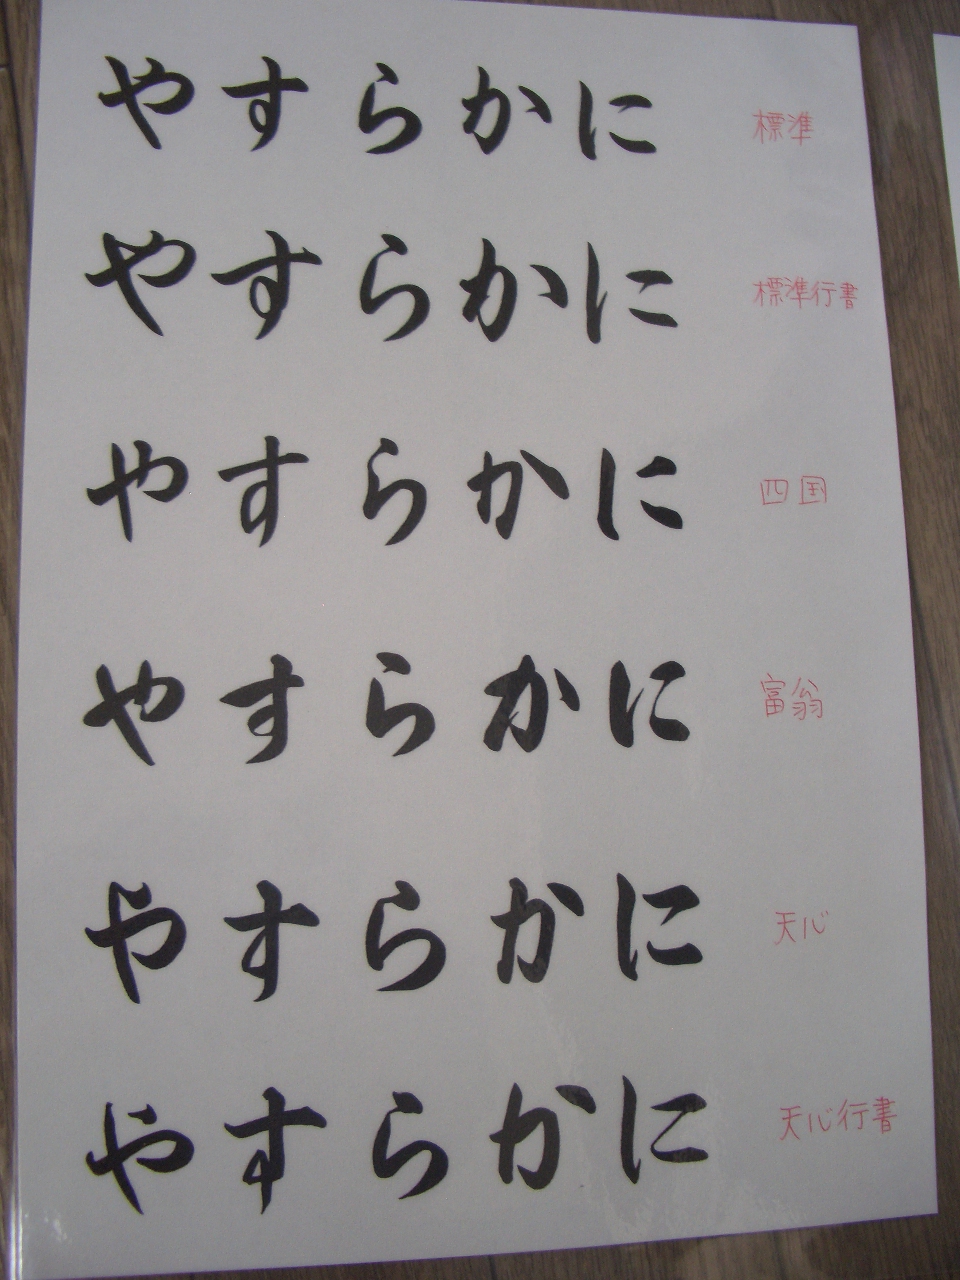 やすらかに 標準
やすらかに 標準行書
やすらかに 四国
やすらかに 富翁
やすらかに 天心
やすらかに 天心行書